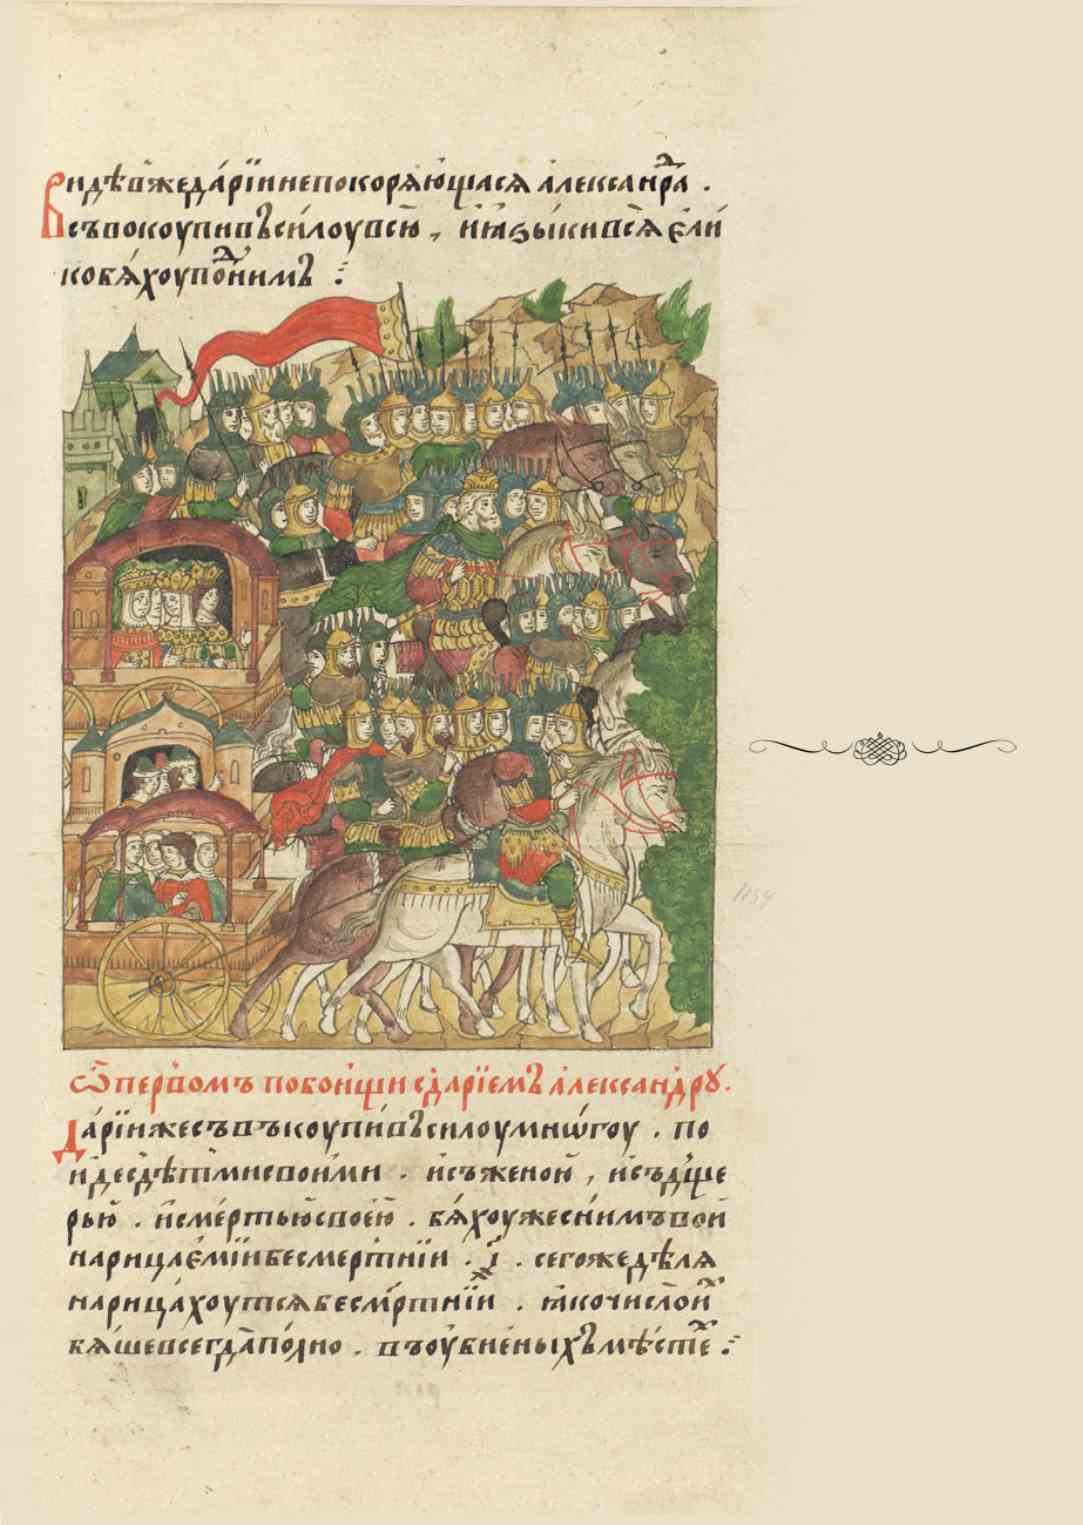 Видѣв же Да́рїи и непокоря́ющася Алекса́ндра .
Съвокоупив в̾си́лоу всю̀ , и̓ ꙗзы́ки всѧ̀ є҆ли́
ко бѧ́хоу по́д ни́мъ ⁘
Ѡ пе́рвомъ побо́ищи с Да́рїемъ Алекса́ндру .
Да́рїи же съвъкоупи́в си́лоу мно́гоу . по
иде с дѣтми свои́ми . и҆ съ жено́и , и҆ съ дще
рью . и҆ с ме́ртью своє́ю . бѧ́хоу же с ни́мъ вои
нарица́емїи бесме́ртнїи . ї҃ . сего же дѣлѧ
нарица́хоутсѧ бесме́ртнїи . ꙗ҆ко число и҆х
бѧ́ше всегда по́лно . въ оу҆бие́ных мѣ́сте ⁘
1154